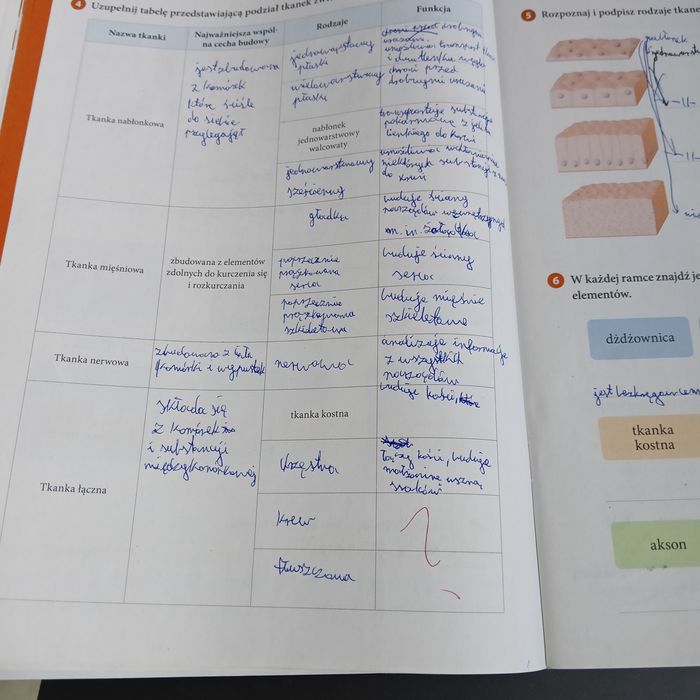 4 Uzupełnij tabelę przedstawiającą podział tkanek
Nazwa tkanki
Najważniejsza wspól-
na cecha budowy
Rodzaje
Funkcja
Tkanka nabłonkowa
jest zbudowana
z komórek
które ściśle
do siebie
przylegają
jednowarstwowy
płaski
chroni przed
wielowarstwowy
płaski
chroni przed
drobnymi urazami
nabłonek
jednowarstwowy
walcowaty
transportuje
do krwi
jednowarstwowy
sześcienny
umożliwia wchłanianie
niektórych substancji
do krwi
Tkanka mięśniowa
zbudowana z elementów
zdolnych do kurczenia się
i rozkurczania
gładka
buduje ściany
narządów wewnętrznych
m. in. żołądka
poprzecznie
prążkowana
serca
buduje ściany
serca
poprzecznie
prążkowana
szkieletowa
buduje mięśnie
szkieletowe
Tkanka nerwowa
zbudowana z ciała
komórki i wypustek
nerwowa
analizuje informacje
z wszystkich
narządów
Tkanka łączna
składa się
z komórek
i substancji
międzykomórkowej
tkanka kostna
buduje kości
chrzęstna
łączy kości, buduje
małżowinę uszną
ssaków
krew
tłuszczowa
5 Rozpoznaj i podpisz rodzaje
nabłonek
-11-
-11-
6 W każdej ramce znajdź
elementów.
dżdżownica
jest bezkręgowcem
tkanka
kostna
akson